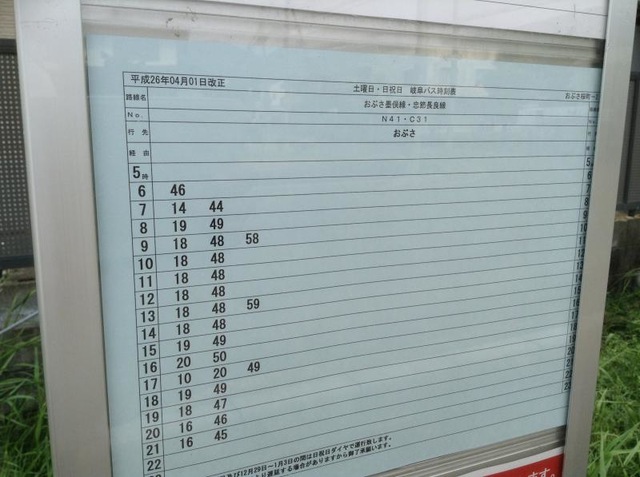 平成26年04月01日改正 土曜日・日祝日 岐阜バス時刻表 おぶさ桜町
路線名 おぶさ墨俣線・忠節長良線
No. N41・C31
行先 おぶさ
経由
5時
6 46
7 14 44
8 19 49
9 18 48 58
10 18 48
11 18 48
12 18 48
13 18 48 59
14 18 48
15 19 49
16 20 50
17 10 20 49
18 19 49
19 18 47
20 16 46
21 16 45
22
12月29日～1月3日の間は日祝日ダイヤで運行致します。
遅延する場合がありますから御了承願います。
ます。